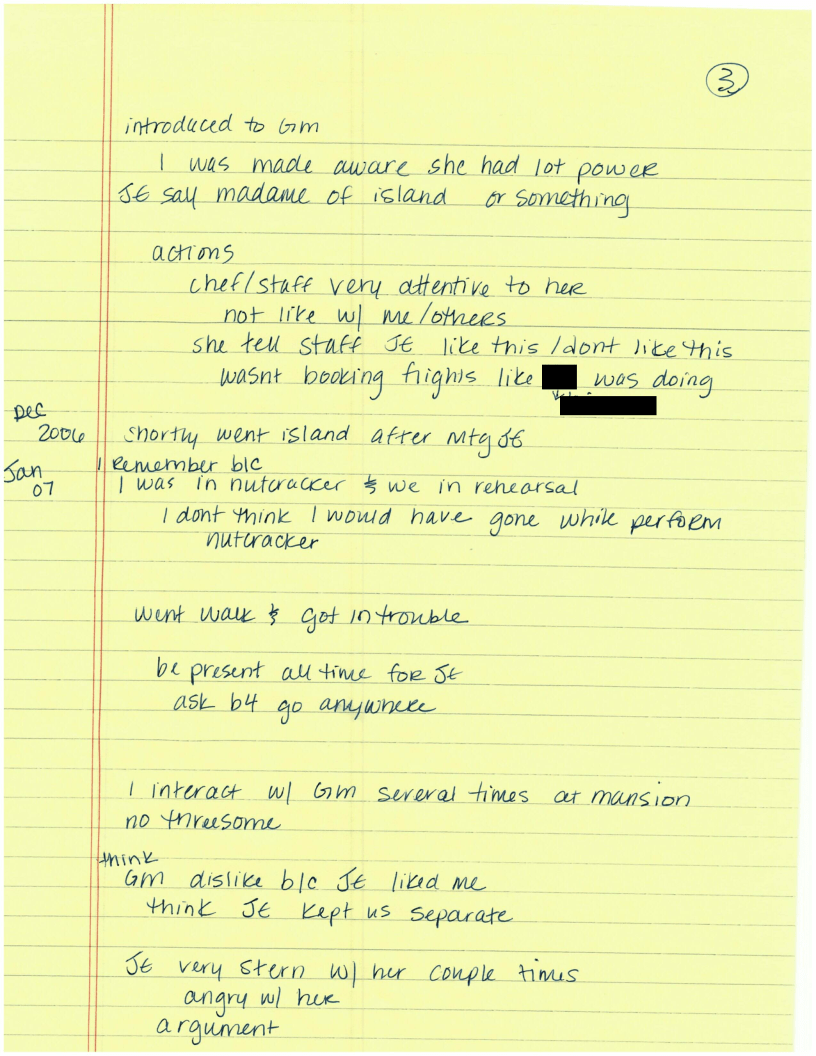 3
introduced to Gm
I was made aware she had lot power
JE say madame of island or something
actions
chef/staff very attentive to her
not like w/ me/others
she tell staff JE like this / dont like this
wasnt booking flights like was doing
Dec
2006 shortly went island after mtg JE
I remember b/c
Jan
07 I was in nutcracker & we in rehearsal
I dont think I would have gone while perform
nutcracker
went walk & got in trouble
be present all time for JE
ask b4 go anywhere
I interact w/ Gm several times at mansion
no threesome
think
Gm dislike b/c JE liked me
think JE kept us separate
JE very stern w/ her couple times
angry w/ her
argument